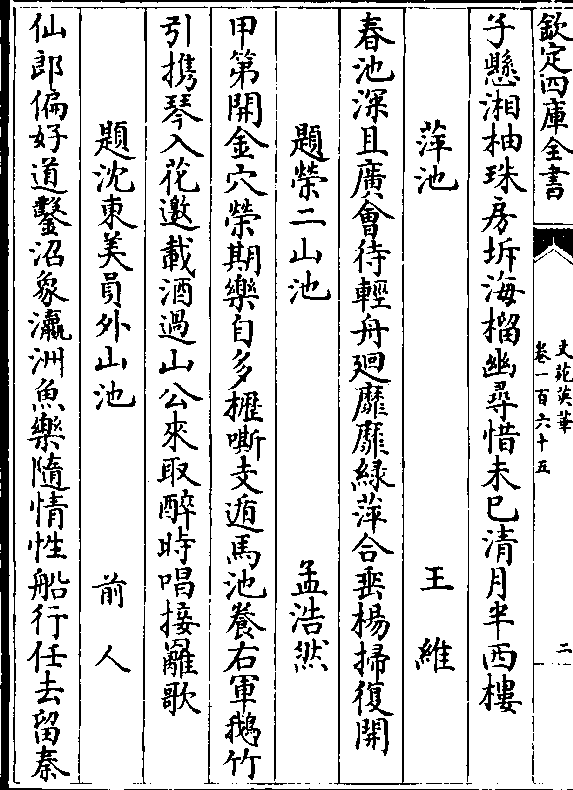 欽定四庫全書
文苑英華
卷一百六十五
二
子懸湘柚珠房拆海榴幽尋惜未已清月半西樓
萍池
王維
春池深且廣會待輕舟廻靡靡綠萍合垂楊掃復開
題榮二山池
孟浩然
甲第開金穴榮期樂自多櫪嘶支遁馬池養右軍鵝竹
引攜琴入花邀載酒過山公來取醉時唱接䍦歌
題沈東美員外山池
前人
仙郎偏好道鑿沼象瀛洲魚樂隨情性船行任去留秦